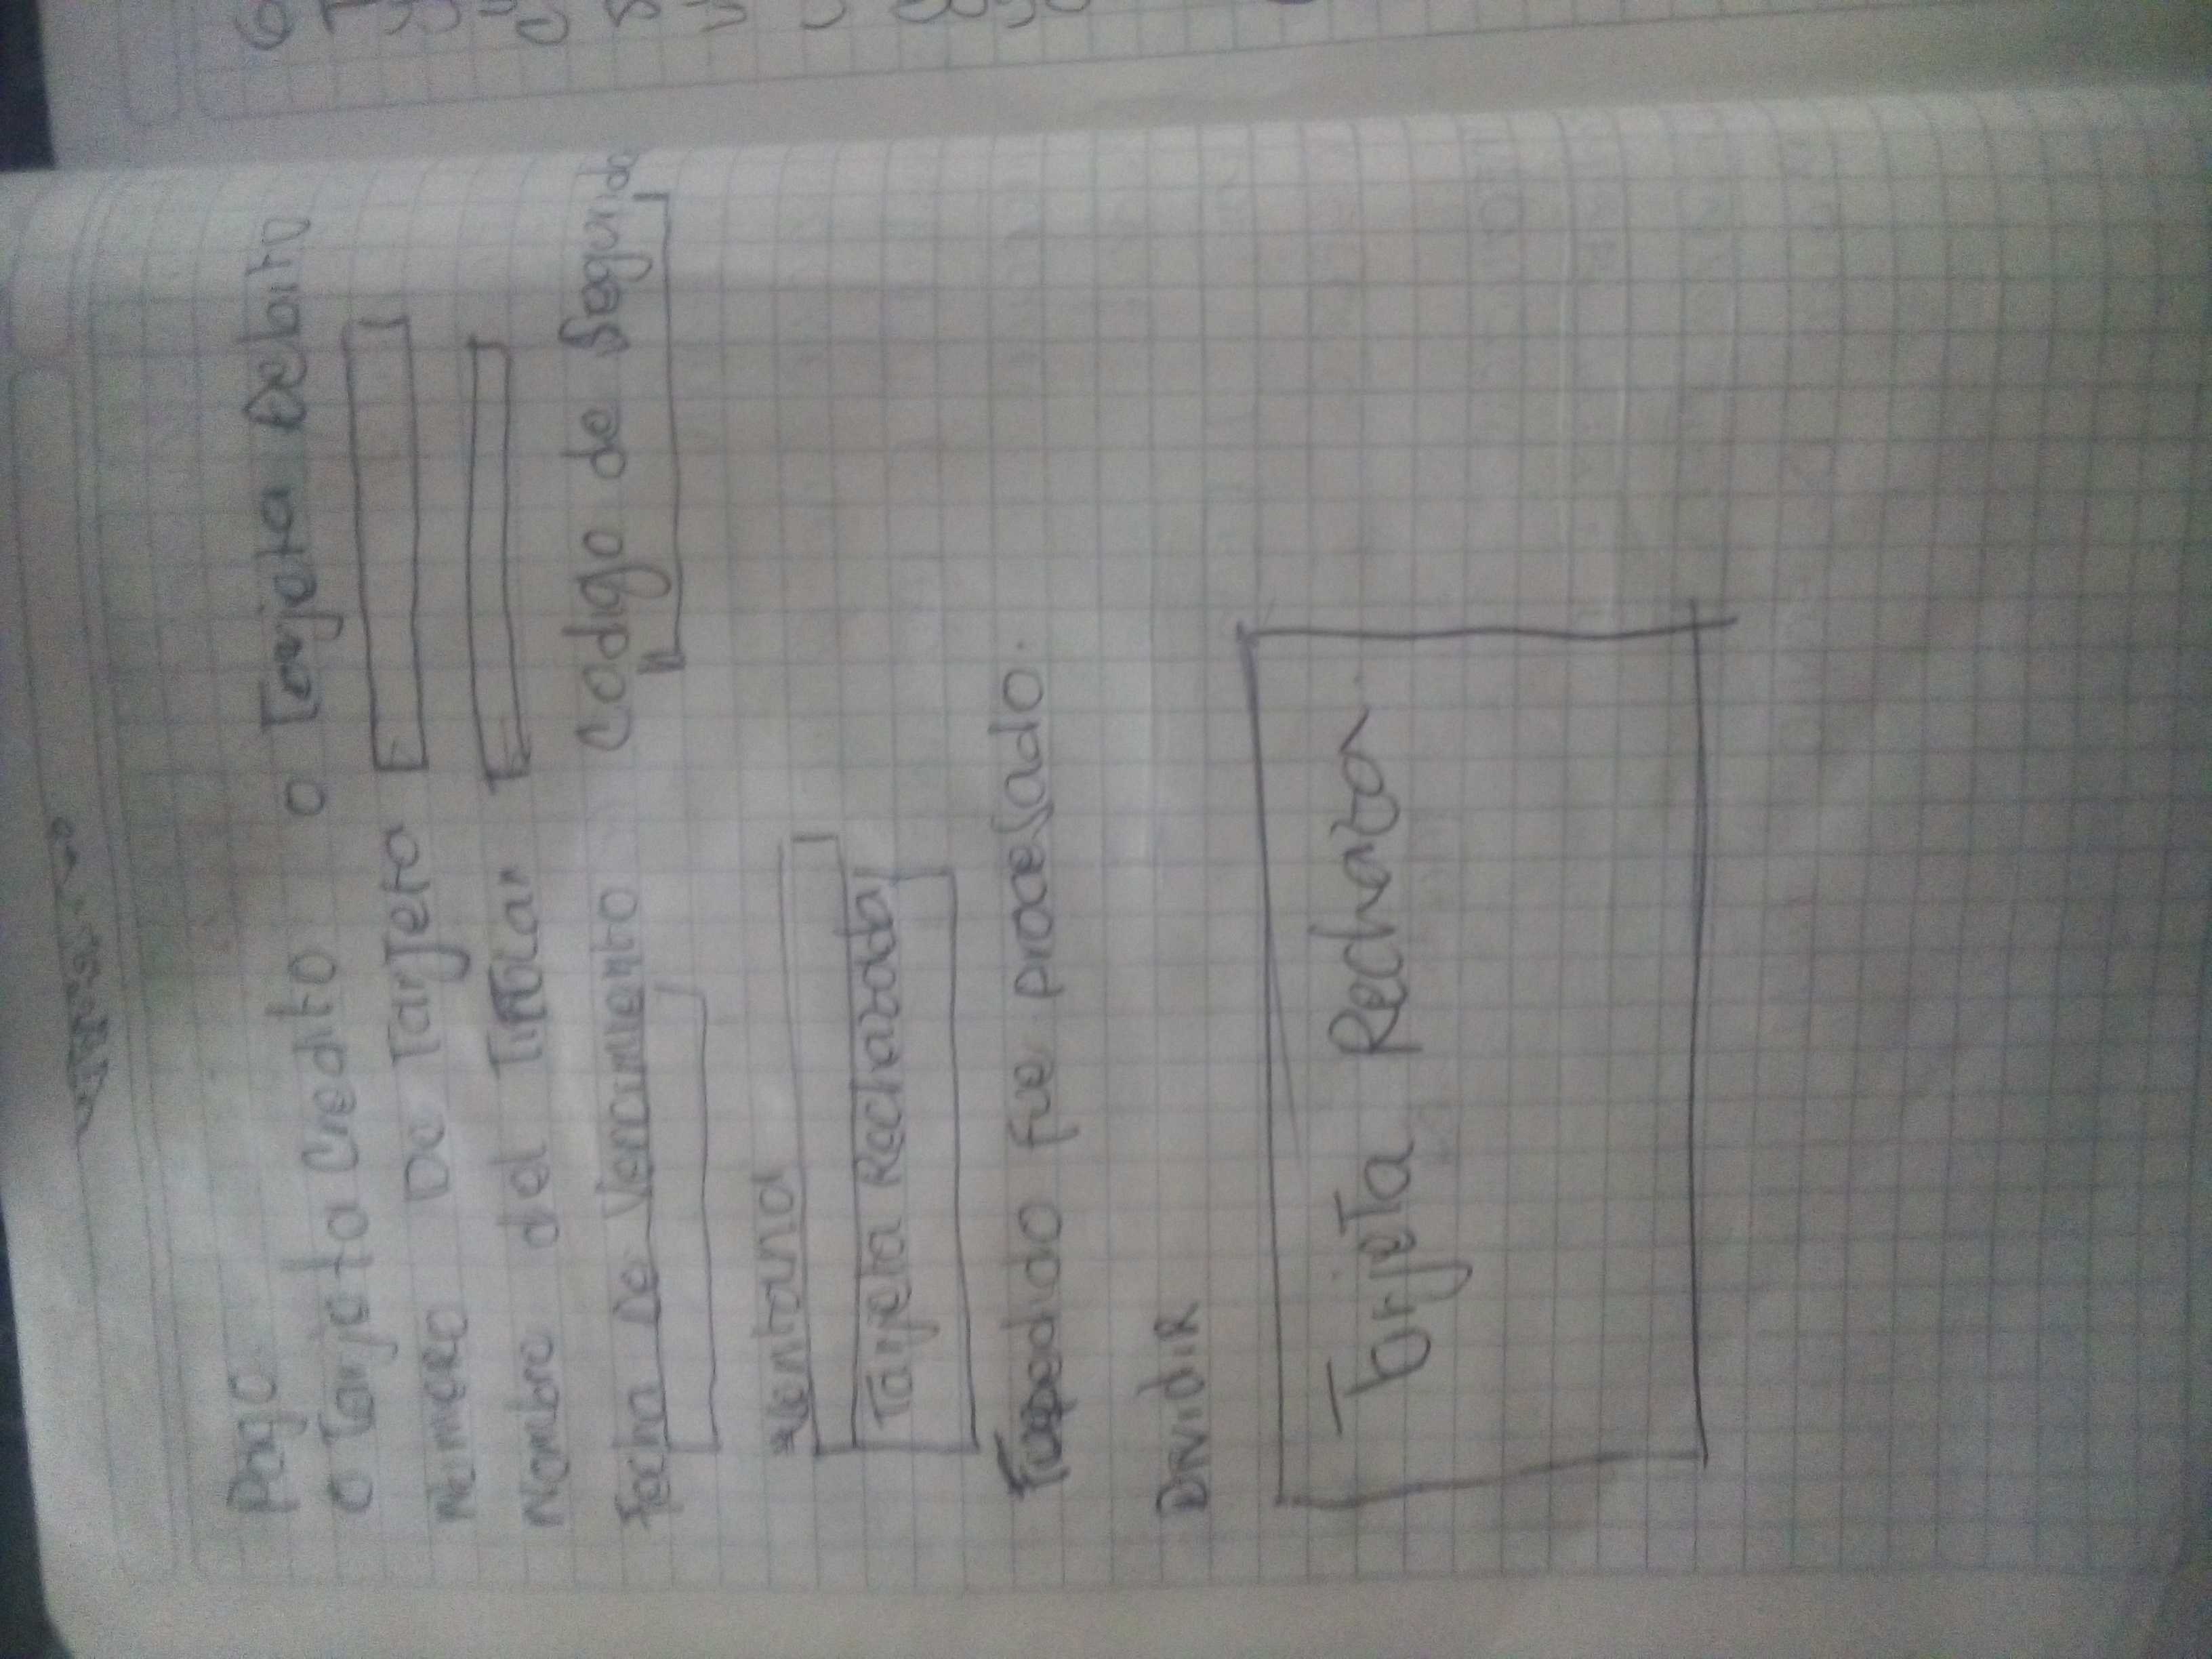 Pago
o Tarjeta Credito o Tarjeta Debito
Numero De Tarjeta
Nombre del Titular
Fecha De Vencimiento Codigo de Segurida
*Ventana
Tarjeta Rechazada
fue procesado.
Dividir
Tarjeta Rechaza